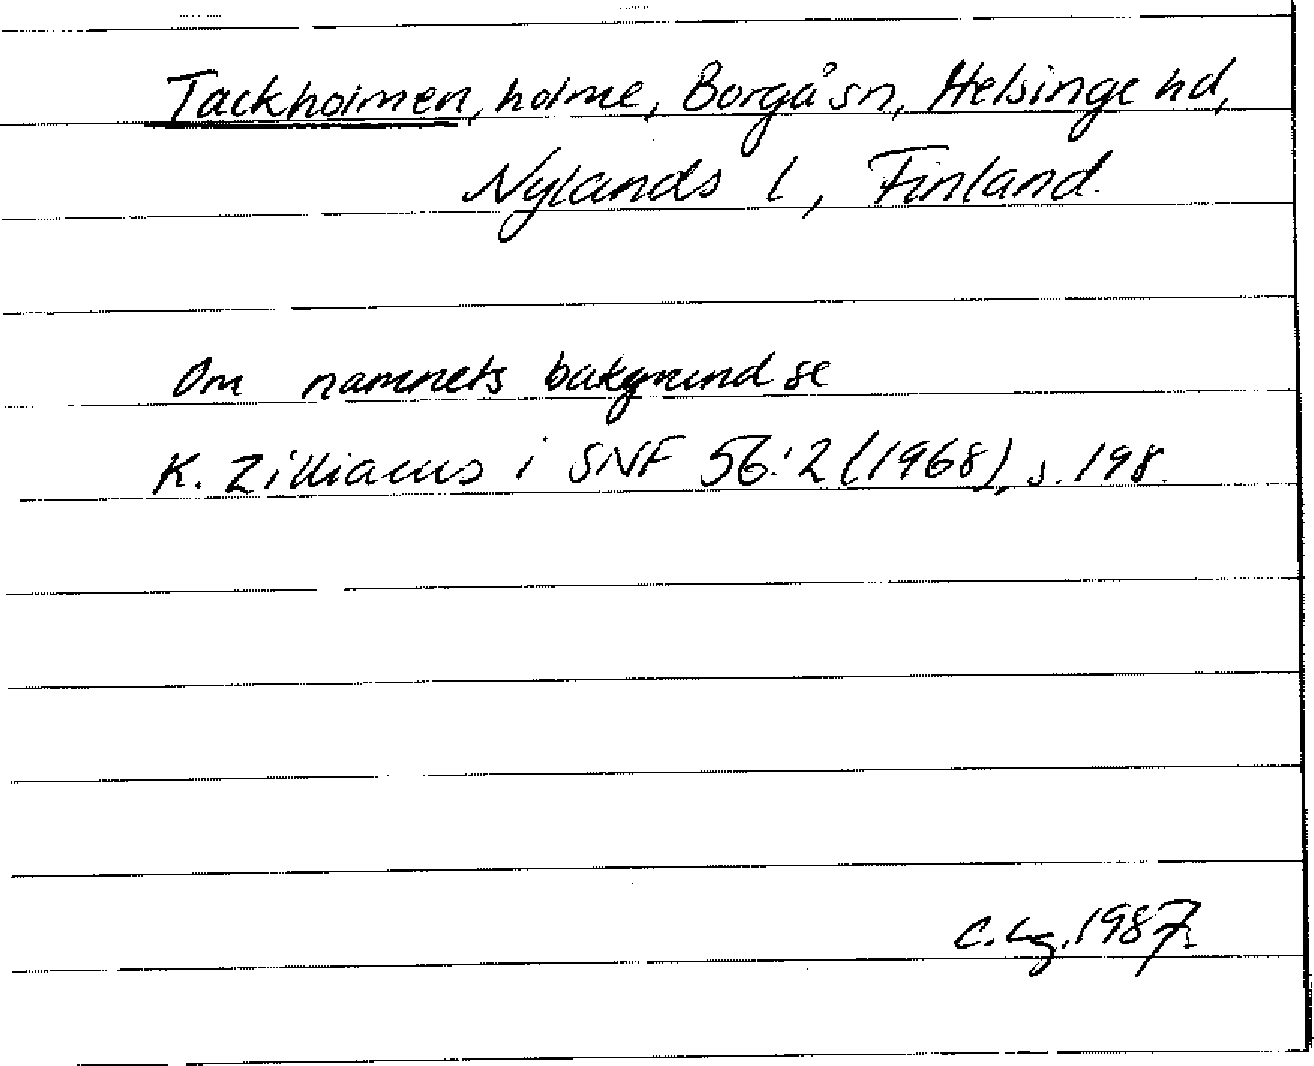 Tackholmen, holme, Borgå sn, Helsinge hd,
Nylands l, Finland.
Om namnets bakgrund se
K. Zilliacus i SNF 56:2 (1968), s. 198.
C. Lg. 1987.